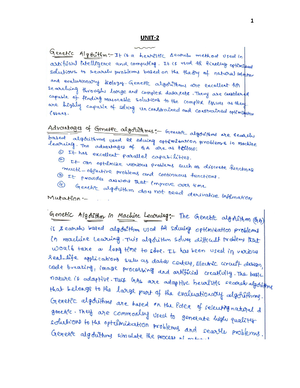 1
UNIT-2
Genetic Algorithm:- It is a heuristic search method used in
artificial intelligence and computing. It is used for finding optimized
solutions to search problems based on the theory of natural selection
and evolutionary biology. Genetic algorithms are excellent for
searching through large and complex datasets. They are considered
capable of finding reasonable solutions to the complex issues as they
are highly capable of solving unconstrained and constrained optimization
issues.
Advantages of Genetic algorithms:- Genetic algorithms are search
based algorithms used for solving optimization problems in machine
learning. The advantages of GA are as follows:
① It has excellent parallel capabilities.
② It can optimize various problems such as discrete functions
multi-objective problems and continuous functions.
③ It provides answers that improve over time.
④ Genetic algorithm does not need derivative information
Mutation
Genetic Algorithm in Machine Learning:- The Genetic algorithm (GA)
is search based algorithm used for solving optimization problems
in machine learning. This algorithm solve difficult problems that
would take a long time to solve. It has been used in various
real-life applications such as data centers, Electric circuit design,
code breaking, image processing and artificial creativity. The basic
nature is adaptive. This GAs are adaptive heuristic search algorithms
that belongs to the large part of the evolutionary algorithms.
Genetic algorithms are based on the idea of natural &
genetic. They are commonly used to generate high quality
solutions for the optimization problems and search problems.
Genetic algorithms simulate the process of natural